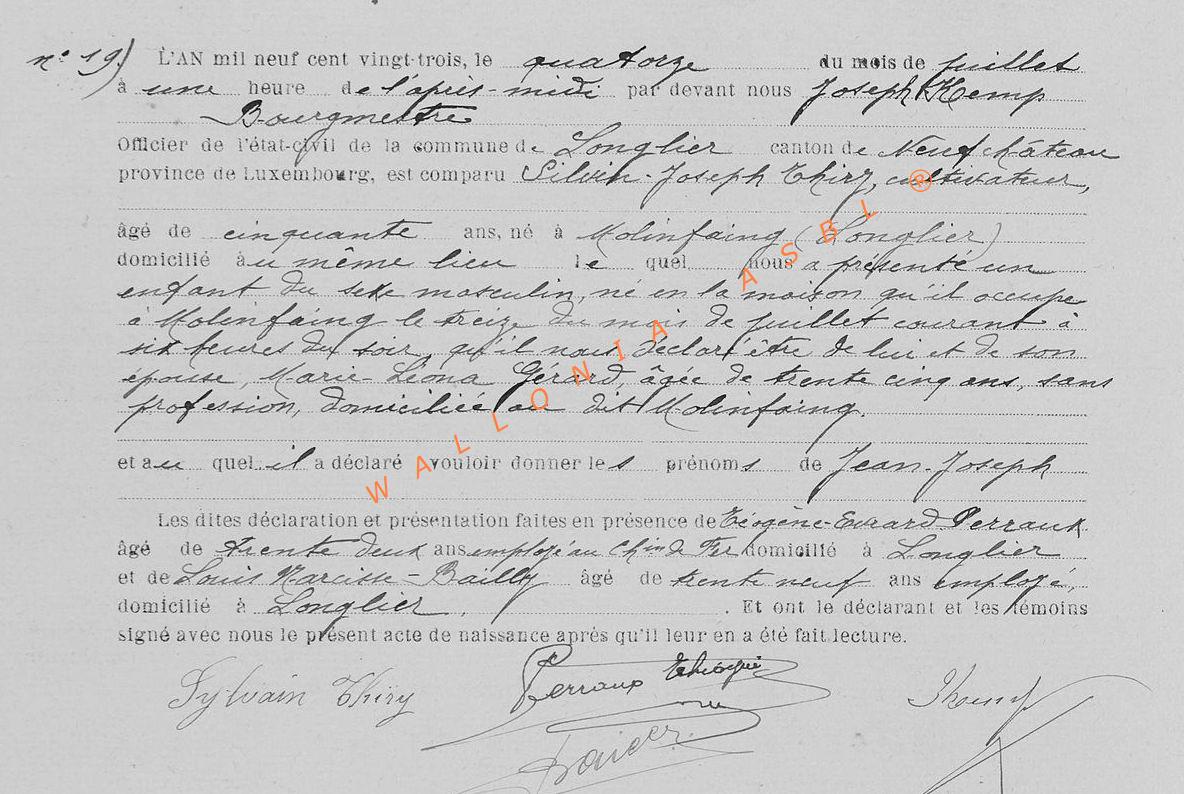 n° 19) L'AN mil neuf cent vingt-trois, le quatorze du mois de juillet
à une heure de l'après-midi par devant nous Joseph Kemp
Bourgmestre
Officier de l'état-civil de la commune de Longlier canton de Neufchâteau
province de Luxembourg, est comparu Silvin-Joseph Thiry, cultivateur,
âgé de cinquante ans, né à Molinfaing (Longlier)
domicilié au même lieu le quel nous a présenté un
enfant du sexe masculin, né en la maison qu'il occupe
à Molinfaing le treize du mois de juillet courant à
six heures du soir, qu'il nous déclare être de lui et de son
épouse, Marie-Léona Gérard, âgée de trente cinq ans, sans
profession, domiciliée au dit Molinfaing.
et au quel il a déclaré vouloir donner les prénoms de Jean-Joseph
Les dites déclaration et présentation faites en présence de Perraux
âgé de trente deux ans employé au Chin de Fer domicilié à Longlier
et de Louis Narcisse-Bailly âgé de trente neuf ans employé,
domicilié à Longlier. Et ont le déclarant et les témoins
signé avec nous le présent acte de naissance après qu'il leur en a été fait lecture.
Sylvain Thiry Perraux
WALLONIA ASBL ®